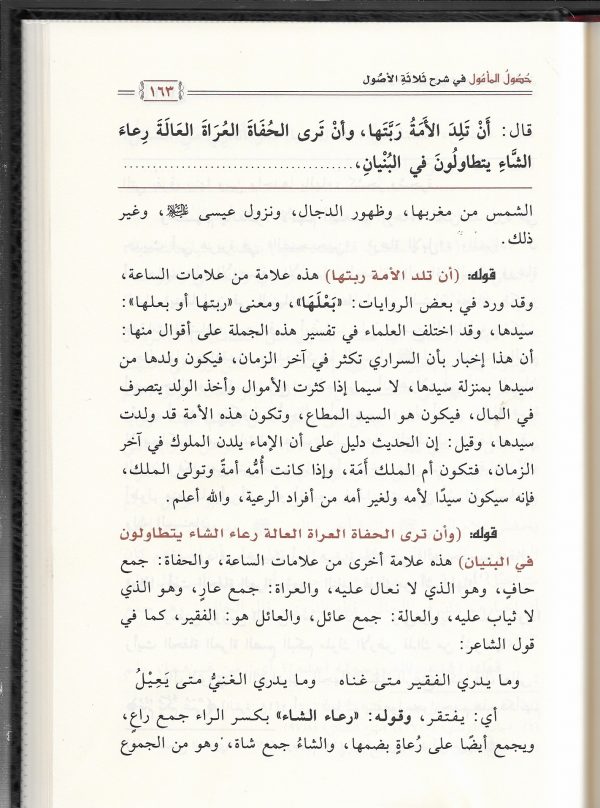 حُصُولُ المأمُول في شرح ثَلاثَةِ الأصُول
١٦٣
قال: أَنْ تَلِدَ الأَمَةُ رَبَّتَها، وأنْ تَرى الحُفَاةَ العُرَاةَ العَالَةَ رِعاءَ
الشَّاءِ يتطاولُونَ في البُنْيانِ،
الشمس من مغربها، وظهور الدجال، ونزول عيسى ﷺ، وغير
ذلك.
قوله: (أن تلد الأمة ربتها) هذه علامة من علامات الساعة،
وقد ورد في بعض الروايات: «بَعْلَهَا»، ومعنى «ربتها أو بعلها»:
سيدها، وقد اختلف العلماء في تفسير هذه الجملة على أقوال منها:
أن هذا إخبار بأن السراري تكثر في آخر الزمان، فيكون ولدها من
سيدها بمنزلة سيدها، لا سيما إذا كثرت الأموال وأخذ الولد يتصرف
في المال، فيكون هو السيد المطاع، وتكون هذه الأمة قد ولدت
سيدها، وقيل: إن الحديث دليل على أن الإماء يلدن الملوك في آخر
الزمان، فتكون أم الملك أَمَة، وإذا كانت أُمُّه أمةً وتولى الملك،
فإنه سيكون سيدًا لأمه ولغير أمه من أفراد الرعية، والله أعلم.
قوله: (وأن ترى الحفاة العراة العالة رعاء الشاء يتطاولون
في البنيان) هذه علامة أخرى من علامات الساعة، والحفاة: جمع
حافٍ، وهو الذي لا نعال عليه، والعراة: جمع عارٍ، وهو الذي
لا ثياب عليه، والعالة: جمع عائل، والعائل هو: الفقير، كما في
قول الشاعر:
وما يدري الفقير متى غناه وما يدري الغنيُّ متى يَعِيْلُ
أي: يفتقر، وقوله: «رعاء الشاء» بكسر الراء جمع راعٍ،
ويجمع أيضًا على رُعاةٍ بضمها، والشاءُ جمع شاة، وهو من الجموع